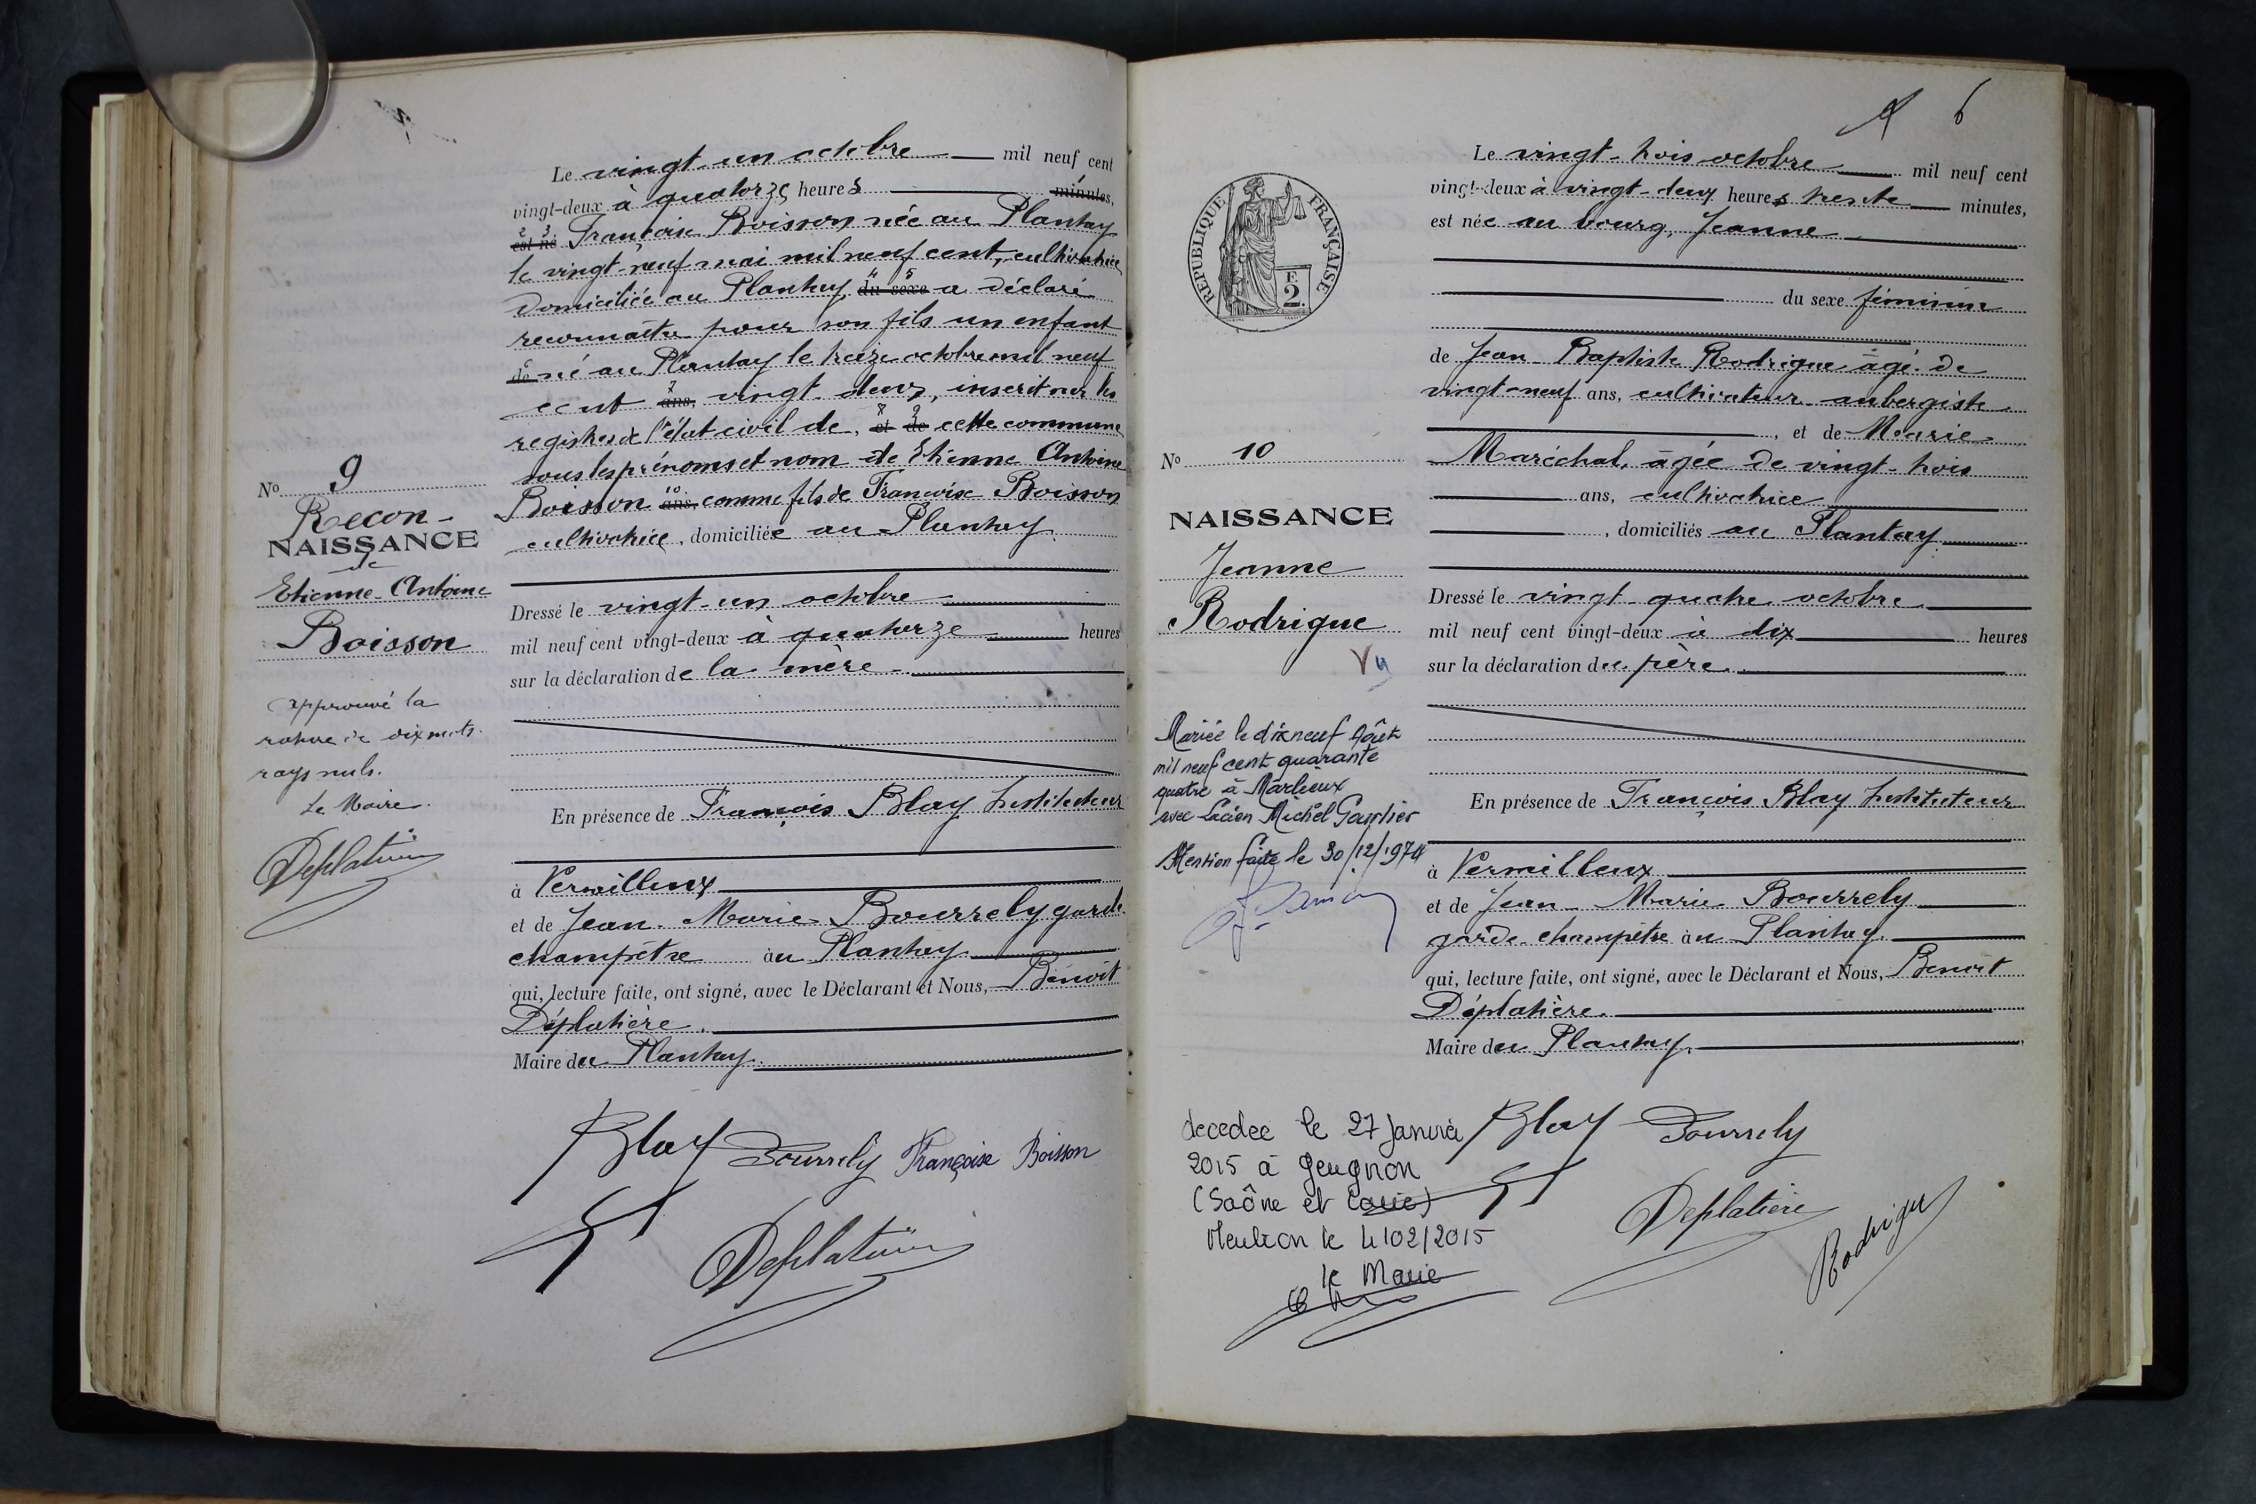 Le vingt-un octobre mil neuf cent
vingt-deux à quatorze heures minutes,
2 3
est né Françoise Boisson née au Plantay
le vingt-neuf mai mil neuf cent, cultivatrice
4 5
domiciliée au Plantay du sexe a déclaré
reconnaître pour son fils un enfant
6
de né au Plantay le treize octobre mil neuf
7
cent ans, vingt-deux, inscrit sur les
8 9
registres de l'état civil de, et de cette commune
sous les prénoms et nom de Etienne Antoine
10
Boisson ans, comme fils de Françoise Boisson
cultivatrice, domiciliée au Plantay.
No 9
Recon-
NAISSANCE
de
Etienne-Antoine
Boisson
approuvé la
rature de dix mots
rays nuls.
Le Maire.
Deplatière
Dressé le vingt-un octobre
mil neuf cent vingt-deux à quatorze heures
sur la déclaration de la mère
En présence de François Blay Instituteur
à Vermilleux
et de Jean-Marie Bourrely garde
champêtre au Plantay
qui, lecture faite, ont signé, avec le Déclarant et Nous, Benoit
Déplatière.
Maire du Plantay.
Blay Bourrely Françoise Boisson
Deplatière
6
Le vingt-trois octobre mil neuf cent
vingt-deux à vingt-deux heures trente minutes,
est née au bourg, Jeanne
du sexe féminin
de Jean-Baptiste Rodrigue âgé de
vingt-neuf ans, cultivateur aubergiste
, et de Marie
Maréchal, âgée de vingt-trois
ans, cultivatrice
, domiciliés au Plantay.
RÉPUBLIQUE FRANÇAISE
E.
2.
No 10
NAISSANCE
Jeanne
Rodrigue
Vu
Mariée le dix neuf Août
mil neuf cent quarante
quatre à Marlieux
avec Lucien Michel Gauthier
Mention faite le 30/12/1974
Dressé le vingt-quatre octobre
mil neuf cent vingt-deux à dix heures
sur la déclaration du père.
En présence de François Blay Instituteur
à Vermilleux
et de Jean-Marie Bourrely
garde-champêtre au Plantay.
qui, lecture faite, ont signé, avec le Déclarant et Nous, Benoit
Déplatière.
Maire du Plantay.
decedee le 27 Janvier
2015 à Geugnon
(Saône et Loire)
Mention le 4/02/2015
le Maire
Blay Bourrely
Deplatière
Rodrigue